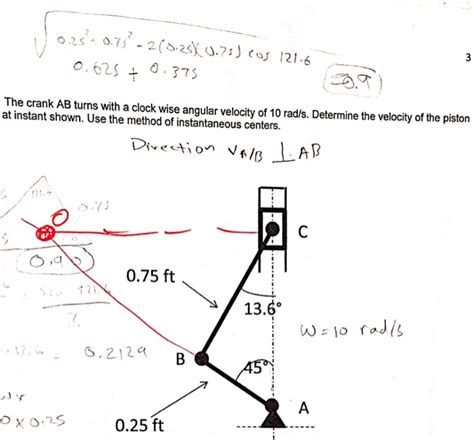 0.25² - 0.75² - 2(0.25)(0.75) cos 121.6
0.625 + 0.375
= 0.9
3
The crank AB turns with a clock wise angular velocity of 10 rad/s. Determine the velocity of the piston
at instant shown. Use the method of instantaneous centers.
Direction VA/B ⊥ AB
0.75
C
0.90
0.75 ft
13.6°
W=10 rad/s
13.6 = 0.2129
B
45°
0 x 0.25
0.25 ft
A